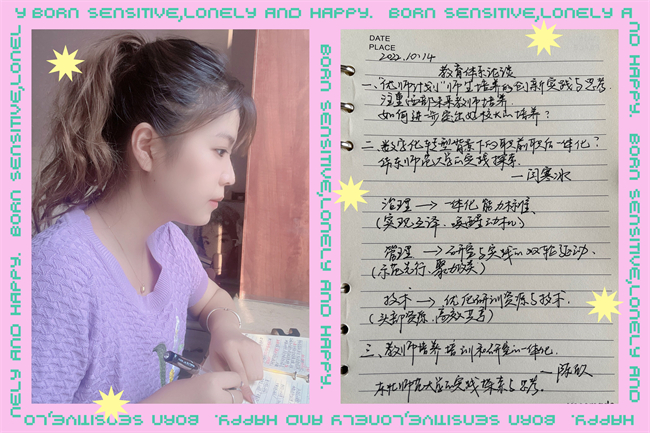 Y BORN SENSITIVE,LONELY AND HAPPY. BORN SENSITIVE,LONELY A
NELY AND HAPPY. BORN SENSITIVE,LONEL
BORN SENSITIVE,LONELY AND HAPPY.
DATE
PLACE
2022.10.14
教育体系论谈
一、"优师计划"师范生培养的创新实践与思考
注重西部未来教师培养
如何进一步突出师校大的培养？
二、数字化转型背景下的职前职后一体化？
华东师范大学的实践探索
—闫寒冰
治理 → 一体化能力标准、
(实现立译、唤醒动机)
管理 → 研室与实践的双轮驱动、
(示范先行、聚力攻关)
技术 → 优化研训资源与技术.
(头部资源、高效共享)
三、教师培养培训和研究的一体化.
东北师范大学的实践探索与思考.
ND HAPPY. BORN SENSITIVE,LONELY AND
HAPPY. BORN SENSITIVE,LONELY AND HAPPY. BORN SENSITIVE,LO